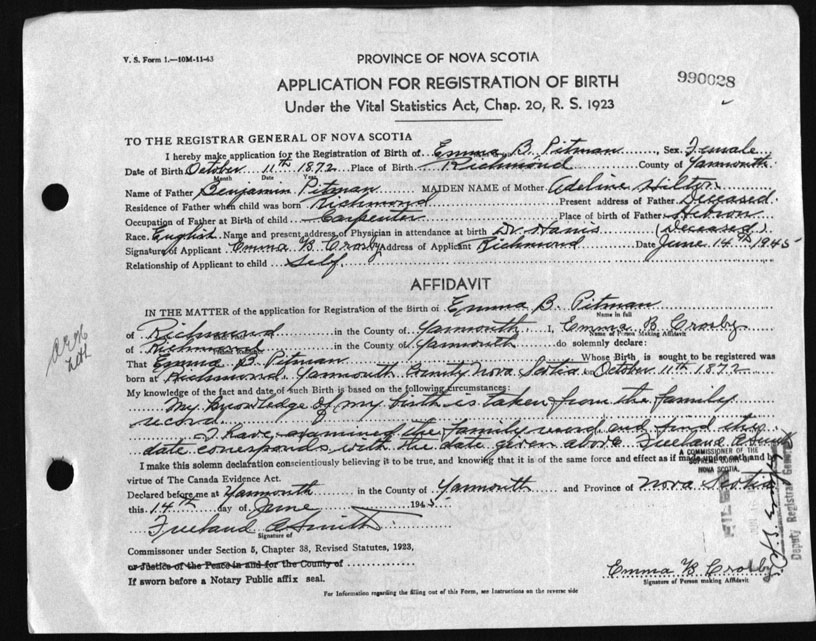 V. S. Form 1.—10M-11-43
PROVINCE OF NOVA SCOTIA
APPLICATION FOR REGISTRATION OF BIRTH
990028
Under the Vital Statistics Act, Chap. 20, R. S. 1923
TO THE REGISTRAR GENERAL OF NOVA SCOTIA
I hereby make application for the Registration of Birth of Emma B. Pitman, Sex Female
Date of Birth October 11th 1872 Place of Birth Richmond County of Yarmouth
Month Date Year
Name of Father Benjamin Pitman MAIDEN NAME of Mother Adeline Hilton
Residence of Father when child was born Richmond Present address of Father Deceased
Occupation of Father at Birth of child Carpenter Place of birth of Father Hebron
Race English Name and present address of Physician in attendance at birth Dr. Harris (Deceased)
Signature of Applicant Emma B Crosby Address of Applicant Richmond Date June 14th 1945
Relationship of Applicant to child Self.
AFFIDAVIT
IN THE MATTER of the application for Registration of the Birth of Emma B. Pitman
Name in full
of Richmond in the County of Yarmouth I, Emma B Crosby
Name of Person Making Affidavit
of Richmond in the County of Yarmouth do solemnly declare:
That Emma B. Pitman Whose Birth is sought to be registered was
born at Richmond Yarmouth County Nova Scotia on October 11th 1872
My knowledge of the fact and date of such Birth is based on the following circumstances:
My knowledge of my birth is taken from the family
record.
I have examined the family record and find this
date corresponds with the date given above Freeland A Smith
A COMMISSIONER OF THE
SUPREME COURT OF
NOVA SCOTIA.
I make this solemn declaration conscientiously believing it to be true, and knowing that it is of the same force and effect as if made under oath and by
virtue of The Canada Evidence Act.
Declared before me at Yarmouth in the County of Yarmouth and Province of Nova Scotia
this 14th day of June 1945
Freeland A Smith
Signature of
Commissioner under Section 5, Chapter 38, Revised Statutes, 1923,
or Justice of the Peace in and for the County of
If sworn before a Notary Public affix seal.
Emma B Crosby
Signature of Person making Affidavit
For Information regarding the filling out of this Form, see Instructions on the reverse side
FILED
Deputy Registrar General